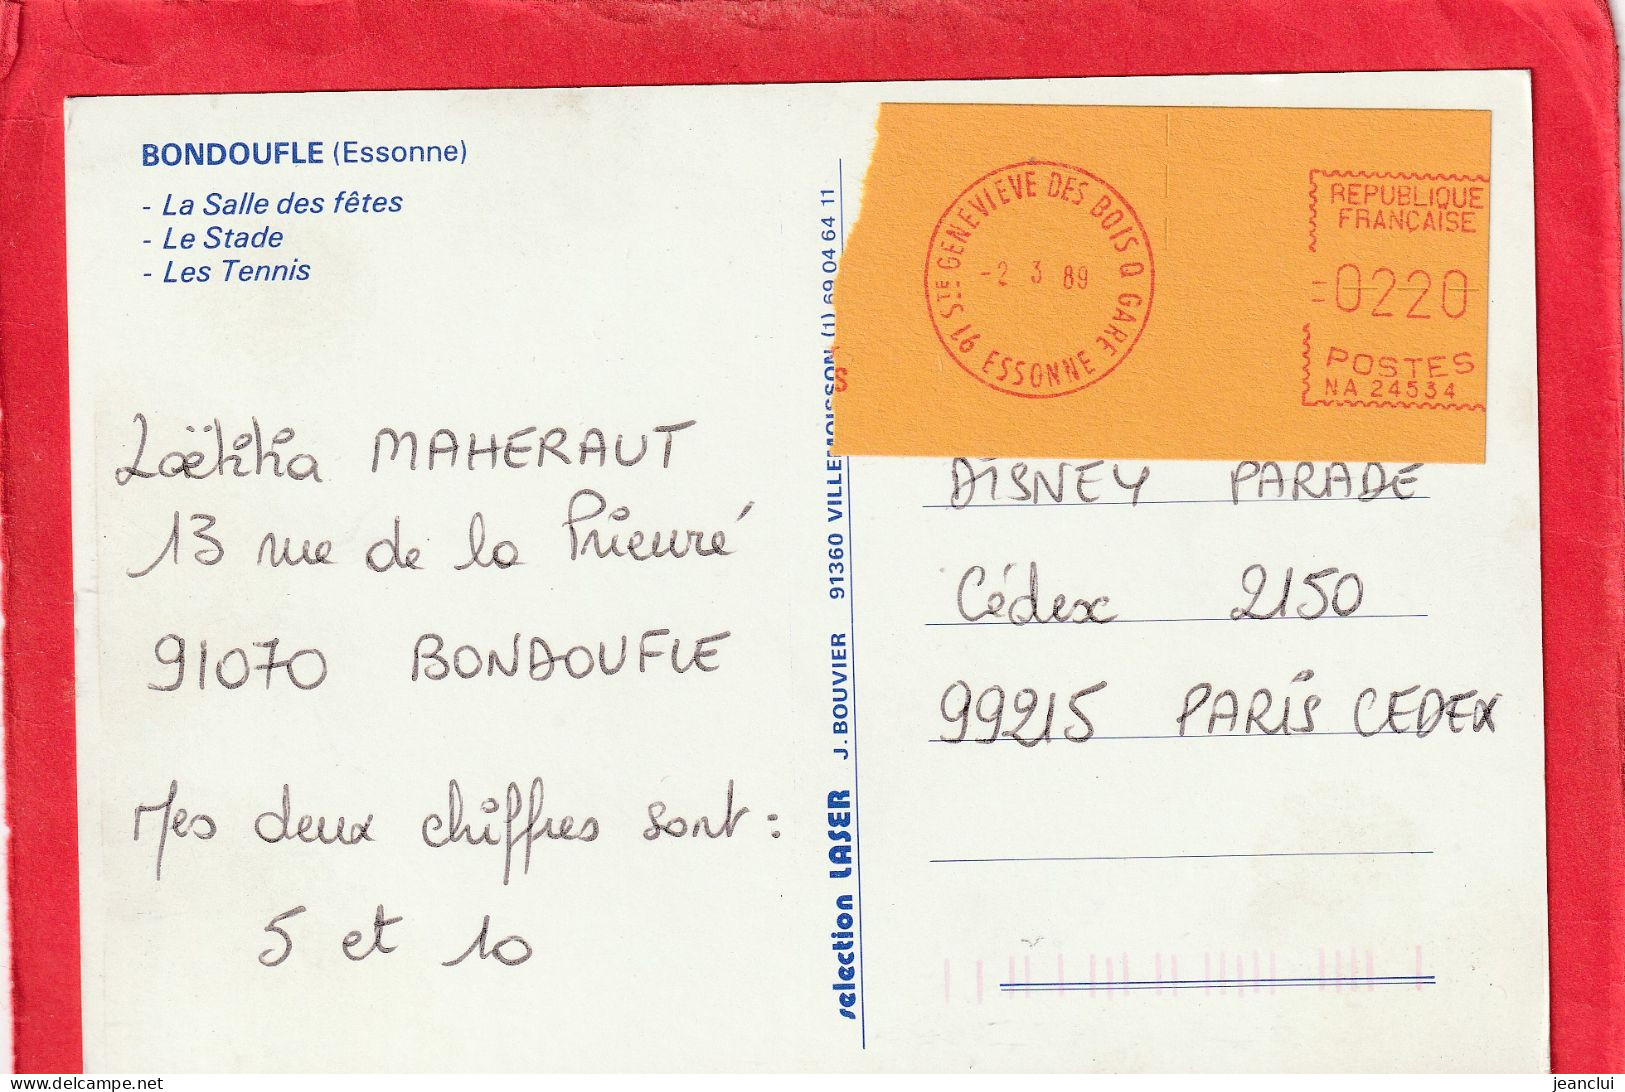 BONDOUFLE (Essonne)
- La Salle des fêtes
- Le Stade
- Les Tennis
Laëtitia MAHERAUT
13 rue de la Prieuré
91070 BONDOUFLE
Mes deux chiffres sont :
5 et 10
selection LASER J. BOUVIER 91360 VILLEMOISSON (1) 69 04 64 11
S
91 STE GENEVIEVE DES BOIS Q GARE
- 2 3 89
ESSONNE
REPUBLIQUE
FRANÇAISE
=0220
POSTES
NA 24534
DISNEY PARADE
Cédex 2150
99215 PARIS CEDEX
delcampe.net
jeanclui